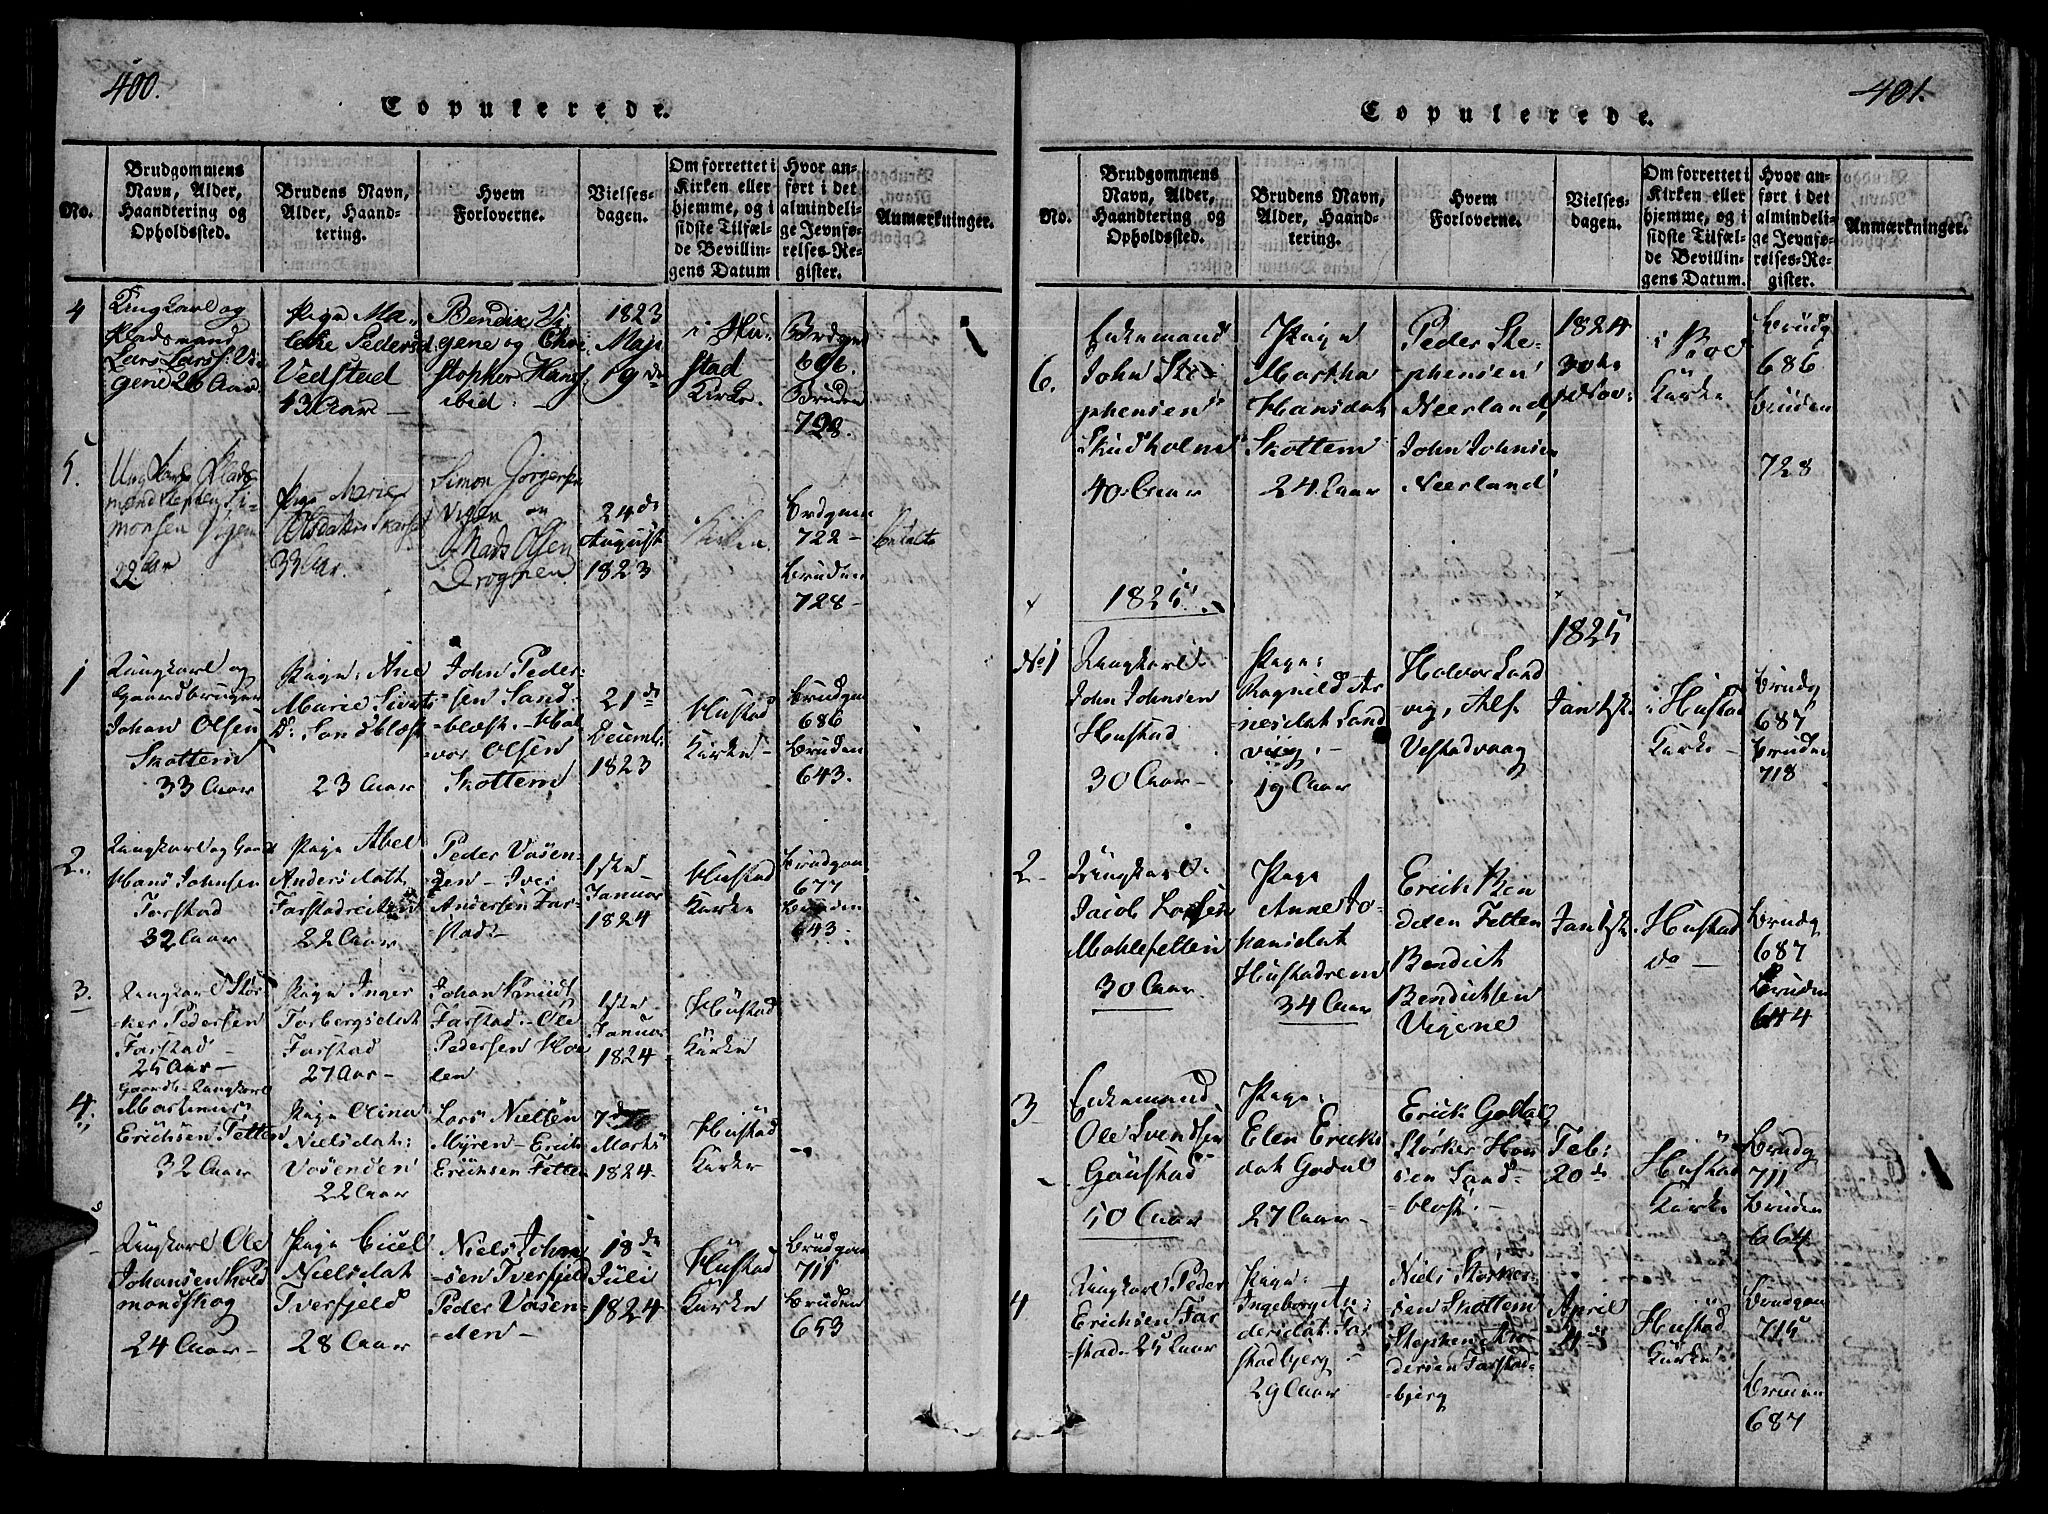 400.
Copulerede.
No.
Brudgommens
Navn, Alder,
Haandtering og
Opholdssted.
Brudens Navn,
Alder, Haand-
tering.
Hvem
Forloverne.
Vielses-
dagen.
Om forrettet i
Kirken eller
hjemme, og i
sidste Tilfæl-
de Bevillin-
gens Datum
Hvor an-
ført i det
almindeli-
ge Jevnfø-
relses-Re-
gister.
Anmærkninger.
4
Ungkarl og
Pladsmand
Lars Larss: Vi-
gene 26 Aar
Pige Ma-
Pedersd
Vedstad
43 Aar
Bendix Vi-
gene og Chri-
stopher Hans
ibid:
1823
Maji
19de
i Hu-
stad
Kirke.
Brdgm
696.
Bruden
728.
5.
Ung Karl Plads
mand Stephen Si-
monsen Vigen
22 Aar
Pige Marie
Olsdatter
33 Aar.
Simon Jørgensen
Vigen og
Mads Olsen
Drognen
24de
August
1823
Kirken
Brdgm
722
Bruden
728
Betalt
1
Ungkarl og
Gaardbruger
Johan Olsen
Skottem
33 Aar
Pige: Ane
Marie Siverts
Dr Sandblost
23 Aar
John Peder-
sen Sand-
blost. Hal-
vor Olsen
Skottem
21de
Decemb.
1823
Hustad
Kirke
Brudgm
686
Bruden
643.
2.
Ungkarl og Gaard
Hans Johnsen
Farstad
32 Aar
Pige Abel
Andersdatt.
Farstadreiten
22 Aar
Peder Vasen-
den Iver
Andersen Far-
stad
1ste
Januar
1824
Hustad
Kirke
Brudgm
677
Bruden
643.
3.
Ungkarl Stør-
ker Pedersen
Farstad
25 Aar
Pige Inger
Torbergsdat
Farstad
27 Aar
Johan Knudt.
Farstad. Ole
Pedersen Hoe
len
1ste
Januar
1824
Hustad
Kirke
4.
Gaardb. Ungkarl
Mortinus
Erichsen Fetten
32 Aar
Pige Olina
Nielsdat:
Vasenden
22 Aar
Lars Nielsen
Myren Erich
Erichsen Fetten
7de
Marts
1824
Hustad
Kirke
Ungkarl Ole
Johansen Hold
mondskog
24 Aar
Pige Cicel
Nielsdat
Tverfjeld
28 Aar
Niels John
sen Tverfjeld
Peder Vasen-
den
18de
Juli
1824
Hustad
Kirke
Brudgm
711
Bruden
653
401.
Copulerede.
No.
Brudgommens
Navn, Alder,
Haandtering og
Opholdssted.
Brudens Navn,
Alder, Haand-
tering.
Hvem
Forloverne.
Vielses-
dagen.
Om forrettet i
Kirken eller
hjemme, og i
sidste Tilfæl-
de Bevillin-
gens Datum.
Hvor an-
ført i det
almindeli-
ge Jevnfø-
relses-Re-
gister.
Anmærkninger.
6.
Enkemand
John Ste-
phensen
Skudholm
40 Aar
Pige
Martha
Hansdat
Skottem
24 Aar
Peder Ste-
phensen
Neerland
John Johnsen
Neerland
1824
30te
Nov:
i Boe
Kirke
Brudg
686
Bruden
728
1825.
1825
No 1
Ungkarl
John Johnsen
Hustad
30 Aar
Pige:
Ragnild Ar
nesdat Sand
viig.
19 Aar
Halvor Sand
vig, Alf
Vestadvaag
Jan 1st.
i Hustad
Kirke
Brudg
687
Bruden
718
2
Ungkarl
Jacob Larsen
Mahlefetten
30 Aar
Pige
Anne Jo-
hansdat
Hustadrem
34 Aar
Erich Ben
dixen Fetten
Bendict
Bendichsen
Vigene
Jan 1st.
Hustad
do
Brudg
687
Bruden
644
3
Enkemand
Ole Svendsen
Gaustad
50 Aar
Pige:
Elen Erichs
dat Godal
27 Aar
Erich Godal
Størker Han
sen Sand-
blost.
Feb:
20de
Hustad
Kirke
Brudg
711
Bruden
664.
4
Ungkarl Peder
Erichsen Far
stad 25 Aar
Pige:
Ingeborg An:
dersdat. Far
stadbjerg
29 Aar
Niels Størker-
sen Skottem
Stephen An-
dersen Farstad-
bjerg
April
4de
Hustad
Kirke
Brudgm
715
Bruden
687